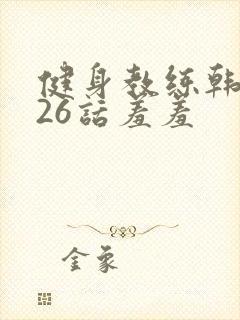 健身教练韩
26話羞羞
金象